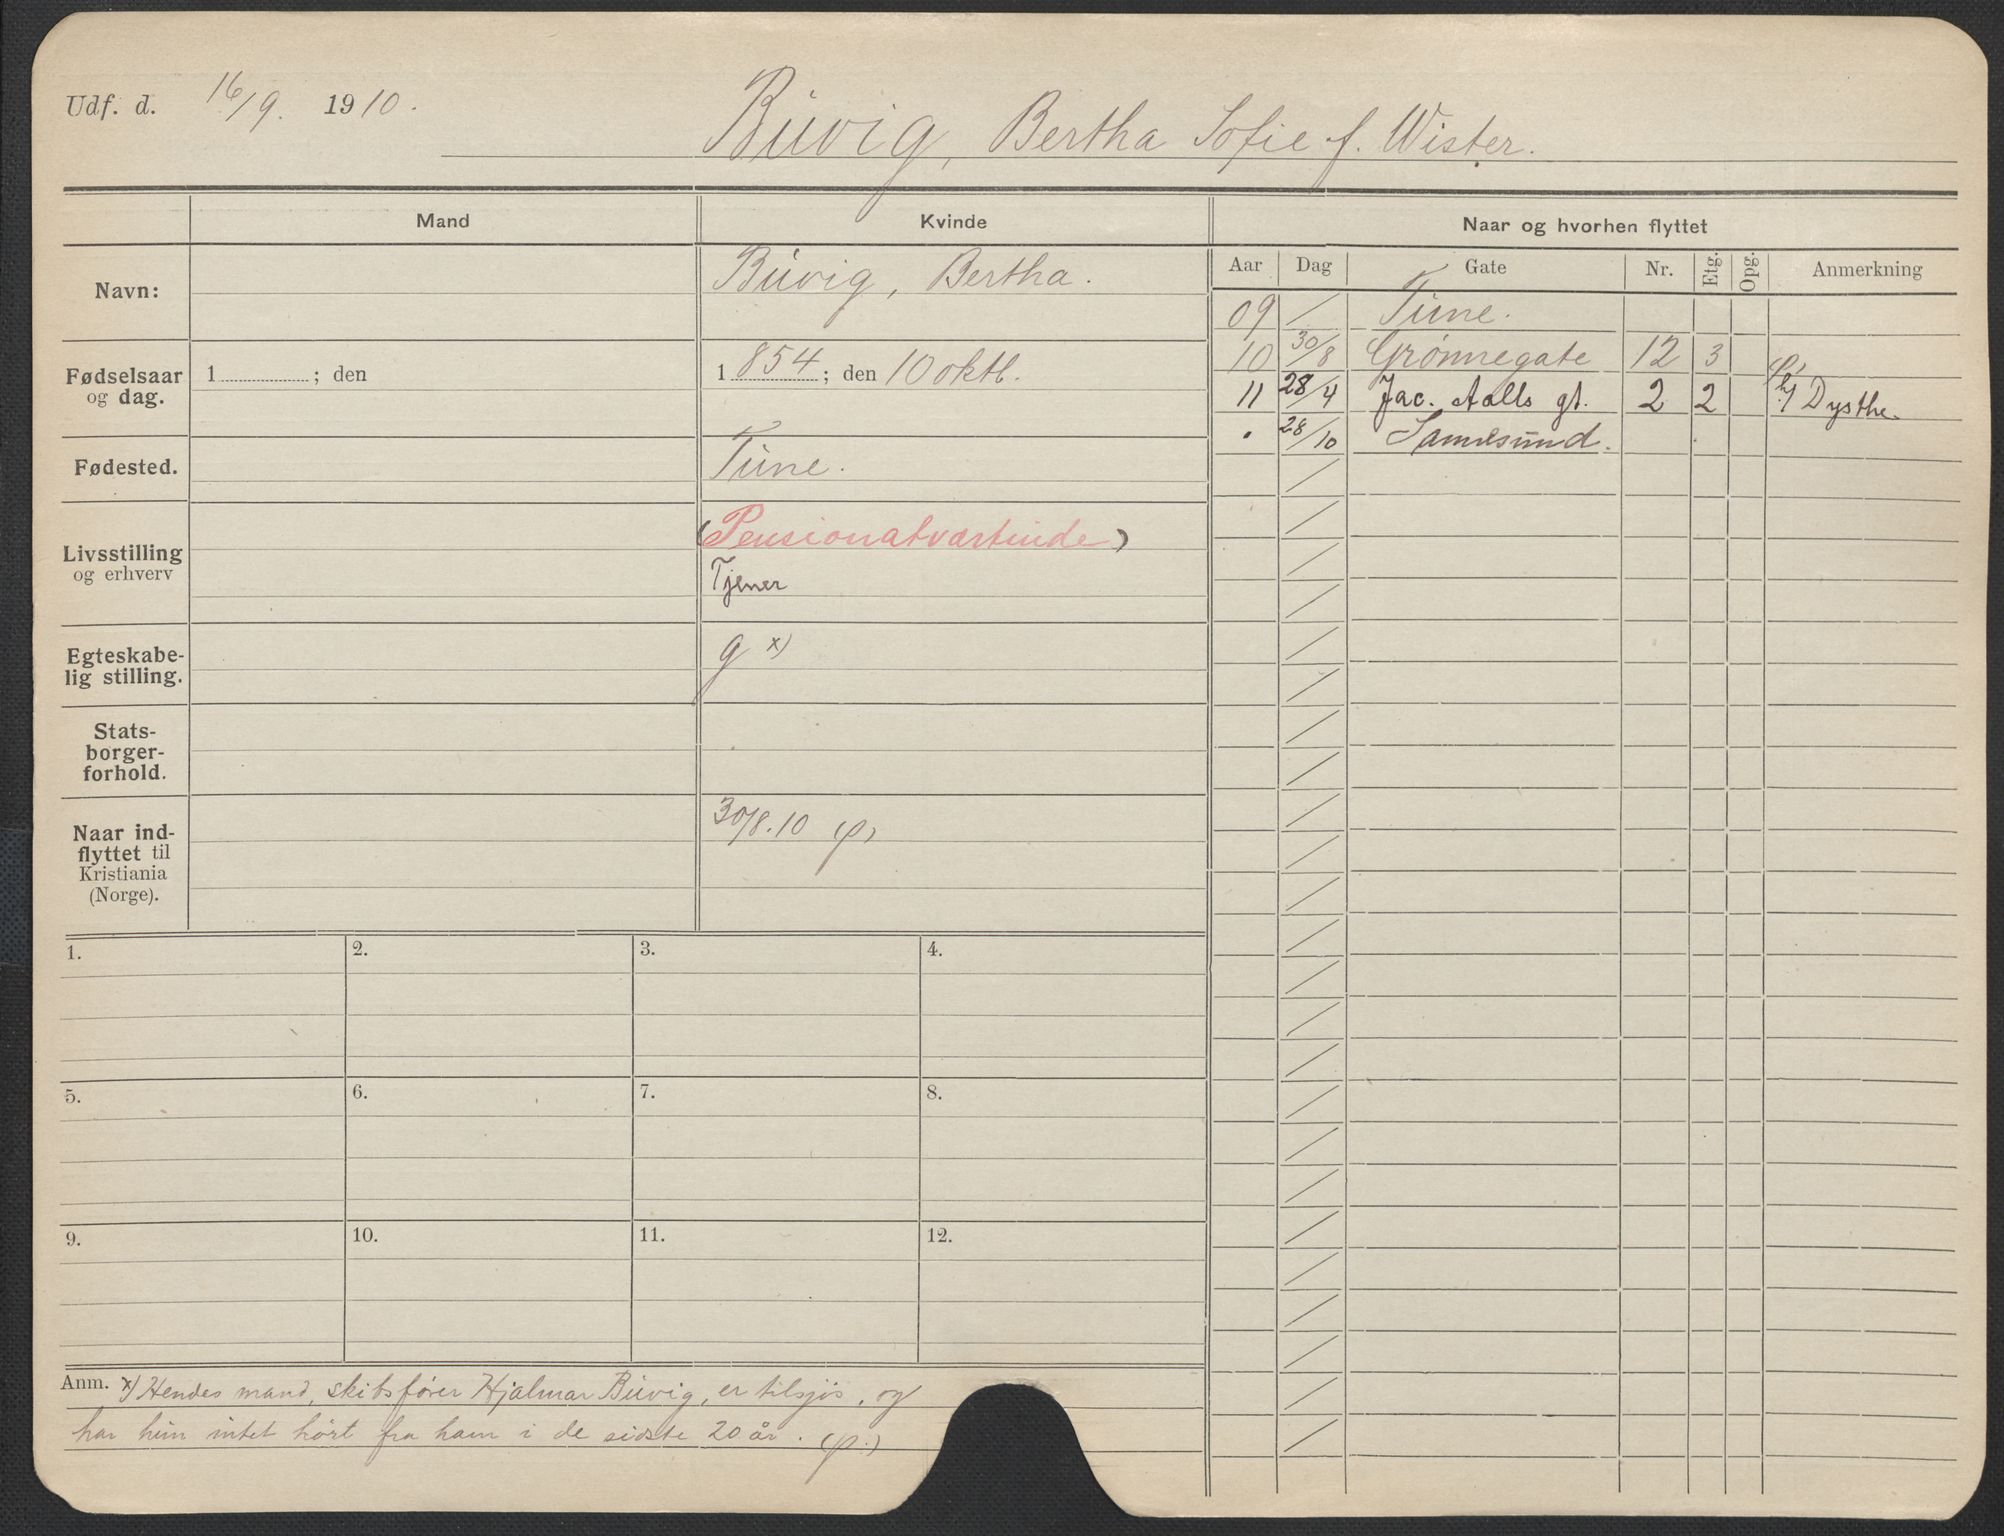 Udf. d. 16/9. 1910.
Buvig, Bertha Sofie f. Wister.
Mand
Kvinde
Naar og hvorhen flyttet
Navn:
Buvig, Bertha.
Fødselsaar
og dag.
1 ; den
1 854 ; den 10 oktb.
Fødested.
Tune.
Livsstilling
og erhverv
(Pensionatværtinde)
Tjener
Egteskabe-
lig stilling.
g x)
Stats-
borger-
forhold.
Naar ind-
flyttet til
Kristiania
(Norge).
30/8.10 (p)
Aar Dag Gate Nr. Etg. Opg. Anmerkning
09 / Tune.
10 30/8 Grønnegate 12 3 (p)
11 28/4 Jac. Aalls gt. 2 2 h/ Dysthe.
. 28/10 Sannesund.
1.
2.
3.
4.
5.
6.
7.
8.
9.
10.
11.
12.
Anm. x) Hendes mand, skibsfører Hjalmar Buvig, er tilsjøs, og
har hun intet hørt fra ham i de sidste 20 år. (p.)